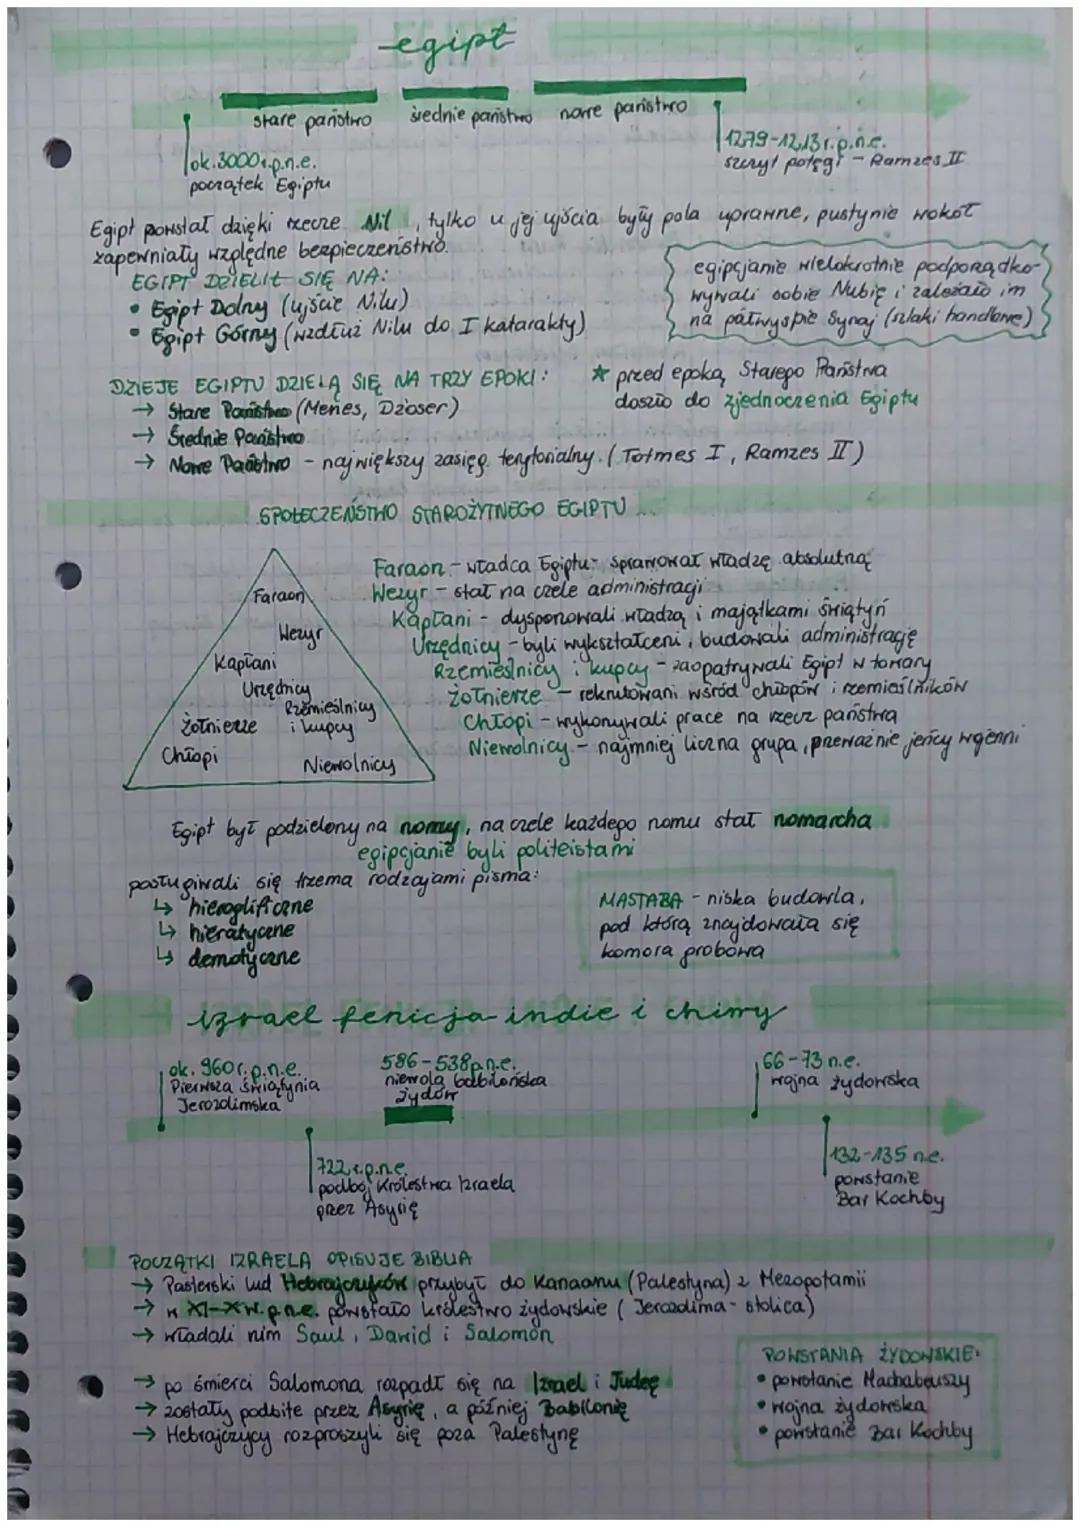 egipt
stare państwo
średnie państwo
nowe państwo
ok. 3000 r.p.n.e.
początek Egiptu
1279-1213 r.p.n.e.
szczyt potęgi - Ramzes II
Egipt powstał dzięki rzecze Nil, tylko u jej ujścia były pola uprawne, pustynie wokół
zapewniały względne bezpieczeństwo.
EGIPT DZIELIŁ SIĘ NA:
• Egipt Dolny (ujście Nilu)
• Egipt Górny (wzdłuż Nilu do I katarakty)
egipcjanie wielokrotnie podporządko-
wywali sobie Nubię i zależało im
na półwyspie Synaj (szlaki handlowe)
DZIEJE EGIPTU DZIELĄ SIĘ NA TRZY EPOKI:
→ Stare Państwo (Menes, Dżoser)
→ Średnie Państwo
→ Nowe Państwo - największy zasięg terytorialny. (Totmes I, Ramzes II)
★ przed epoką Starego Państwa
doszło do zjednoczenia Egiptu
SPOŁECZEŃSTWO STAROŻYTNEGO EGIPTU
Faraon
Wezyr
Kapłani
Urzędnicy
Rzemieślnicy
i kupcy
Żołnierze
Chłopi
Niewolnicy
Faraon - władca Egiptu - sprawował władzę absolutną
Wezyr - stał na czele administracji
Kapłani - dysponowali władzą i majątkami świątyń
Urzędnicy - byli wykształceni, budowali administrację
Rzemieślnicy i kupcy - zaopatrywali Egipt w towary
Żołnierze - rekrutowani wśród chłopów i rzemieślników
Chłopi - wykonywali prace na rzecz państwa
Niewolnicy - najmniej liczna grupa, przeważnie jeńcy wojenni
Egipt był podzielony na nomy, na czele każdego nomu stał nomarcha
egipcjanie byli politeistami
posługiwali się trzema rodzajami pisma:
↳ hieroglificzne
↳ hieratyczne
↳ demotyczne
MASTABA - niska budowla,
pod którą znajdowała się
komora grobowa
izrael fenicja indie i chiny
ok. 960 r.p.n.e.
Pierwsza świątynia
Jerozolimska
586-538 p.n.e.
niewola babilońska
Żydów
66-73 n.e.
wojna żydowska
722 r.p.n.e.
podbój Królestwa Izraela
przez Asyrię
132-135 n.e.
powstanie
Bar Kochby
POCZĄTKI IZRAELA OPISUJE BIBLIA
→ Pasterski lud Hebrajczyków przybył do Kanaanu (Palestyna) z Mezopotamii
→ w XI-X w. p.n.e. powstało królestwo żydowskie (Jerozolima - stolica)
→ władali nim Saul, Dawid i Salomon
→ po śmierci Salomona rozpadł się na Izrael i Judeę
→ zostały podbite przez Asyrię, a później Babilonię
→ Hebrajczycy rozproszyli się poza Palestynę
POWSTANIA ŻYDOWSKIE:
• powstanie Machabeuszy
• wojna żydowska
• powstanie Bar Kochby